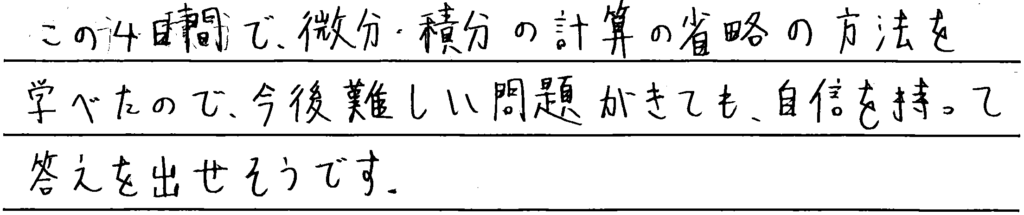 この4時間で、微分・積分の計算の省略の方法を
学べたので、今後難しい問題がきても、自信を持って
答えを出せそうです。